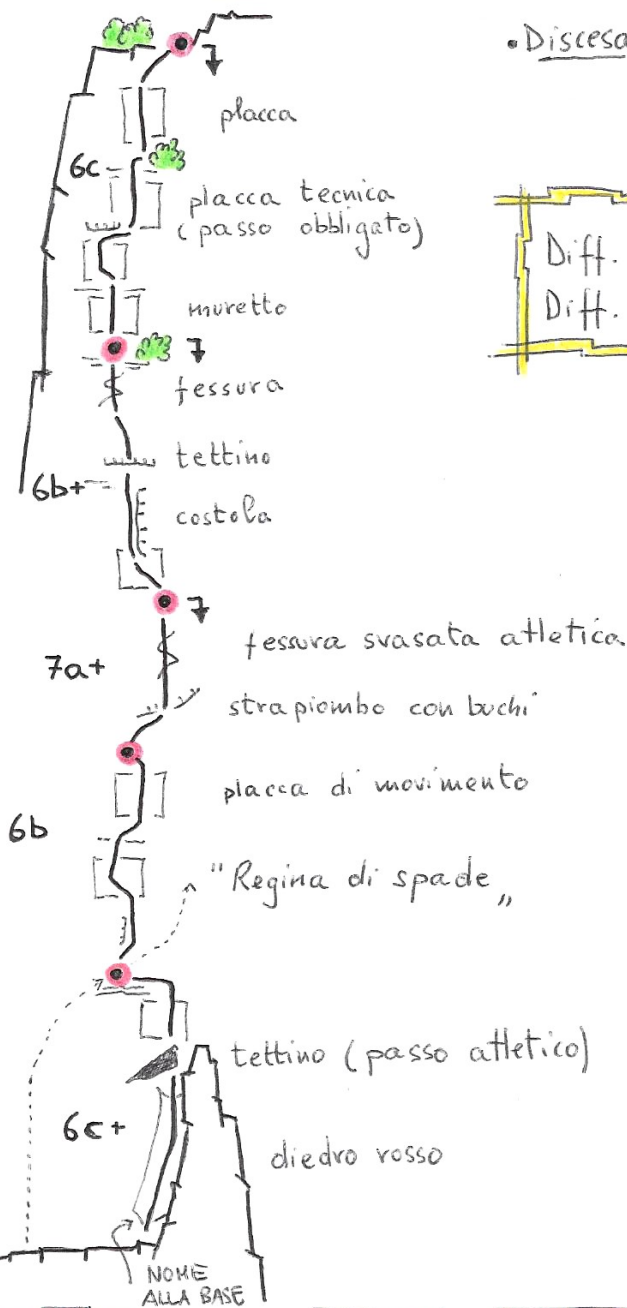 • Discesa
placca
6c
placca tecnica
(passo obbligato)
Diff.
Diff.
muretto
fessura
tettino
6b+
costola
fessura svasata atletica
7a+
strapiombo con buchi
placca di movimento
6b
"Regina di spade„
tettino (passo atletico)
6c+
diedro rosso
NOME
ALLA BASE